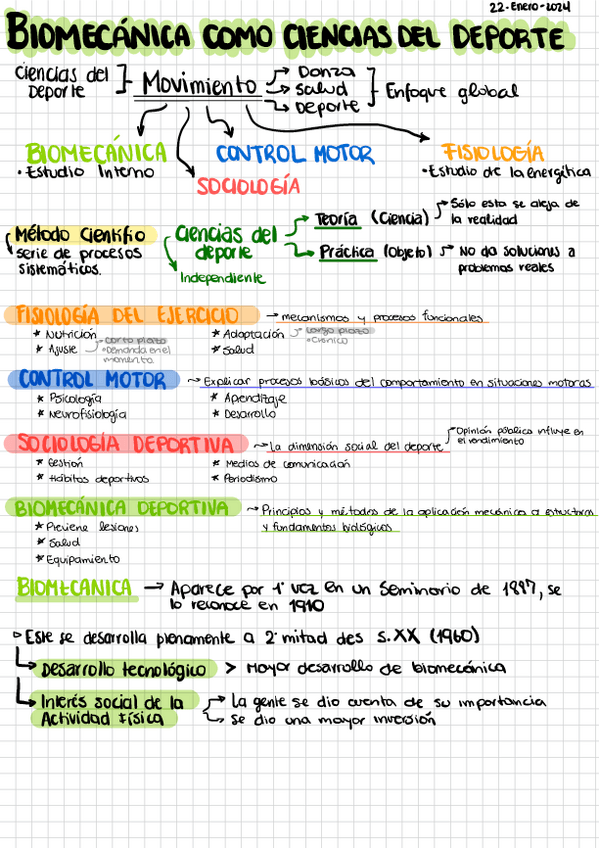 22-Enero-2024
BIOMECÁNICA COMO CIENCIAS DEL DEPORTE
Ciencias del Deporte } Movimiento → Danza → Salud → Deporte } Enfoque global
BIOMECÁNICA CONTROL MOTOR FISIOLOGÍA
• Estudio Interno • Estudio de la energítica
SOCIOLOGÍA
Método Científico
serie de procesos
sistemáticos.
Ciencias del
deporte
Independiente
Teoría (Ciencia) → Sólo esta se aleja de
la realidad
Práctica (Objeto) → No da soluciones a
problemas reales
FISIOLOGÍA DEL EJERCICIO → mecanismos y procesos funcionales
* Nutrición
* Ajuste - corto plazo
• Demanda en el
momento
* Adaptación - Largo plazo
• Crónico
* Salud
CONTROL MOTOR → Explicar procesos básicos del comportamiento en situaciones motoras
* Psicología * Aprendizaje
* Neurofisiología * Desarrollo
SOCIOLOGÍA DEPORTIVA → La dimensión social del deporte
Opinión pública influye en
el rendimiento
* Gestión * Medios de comunicación
* Hábitos deportivos * Periodismo
BIOMECÁNICA DEPORTIVA → Principios y métodos de la aplicación mecánica a estructuras
y fundamentos biológicos
* Previene lesiones
* Salud
* Equipamiento
BIOMECANICA → Aparece por 1ª vez en un Seminario de 1897, se
lo reconoce en 1910
▷ Este se desarrolla plenamente a 2ª mitad des s.XX (1960)
Desarrollo tecnológico > Mayor desarrollo de biomecánica
Interés social de la
Actividad Física
→ La gente se dio cuenta de su importancia
→ Se dio una mayor inversión